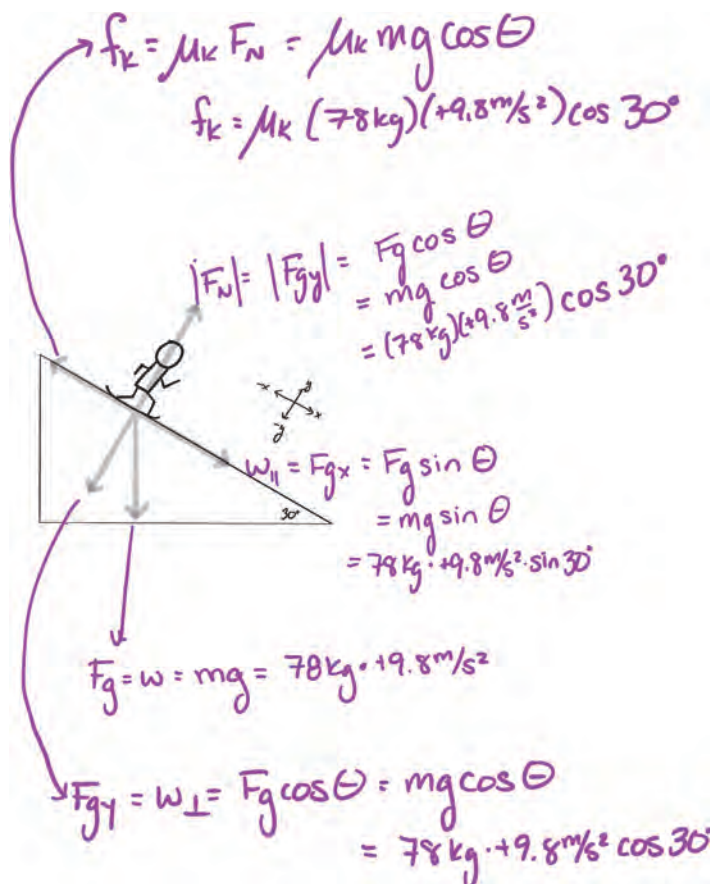 fₖ = μₖ F_N = μₖ mg cos θ
fₖ = μₖ (78kg)(+9.8m/s²) cos 30°
|F_N| = |Fgy| = Fg cos θ
= mg cos θ
= (78kg)(+9.8 m/s²) cos 30°
-x y
-y x
W∥ = Fgx = Fg sin θ
= mg sin θ
30°
= 78kg · +9.8m/s² · sin 30°
Fg = w = mg = 78kg · +9.8m/s²
Fgy = w⊥ = Fg cos θ = mg cos θ
= 78kg · +9.8m/s² cos 30°